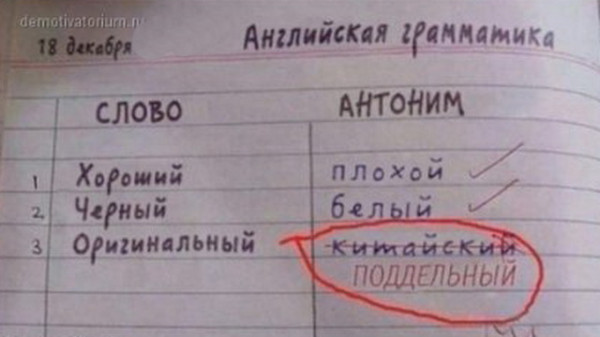 demotivatorium.ru
18 декабря Английская грамматика
СЛОВО АНТОНИМ
1 Хороший плохой
2 Черный белый
3 Оригинальный китайский
ПОДДЕЛЬНЫЙ